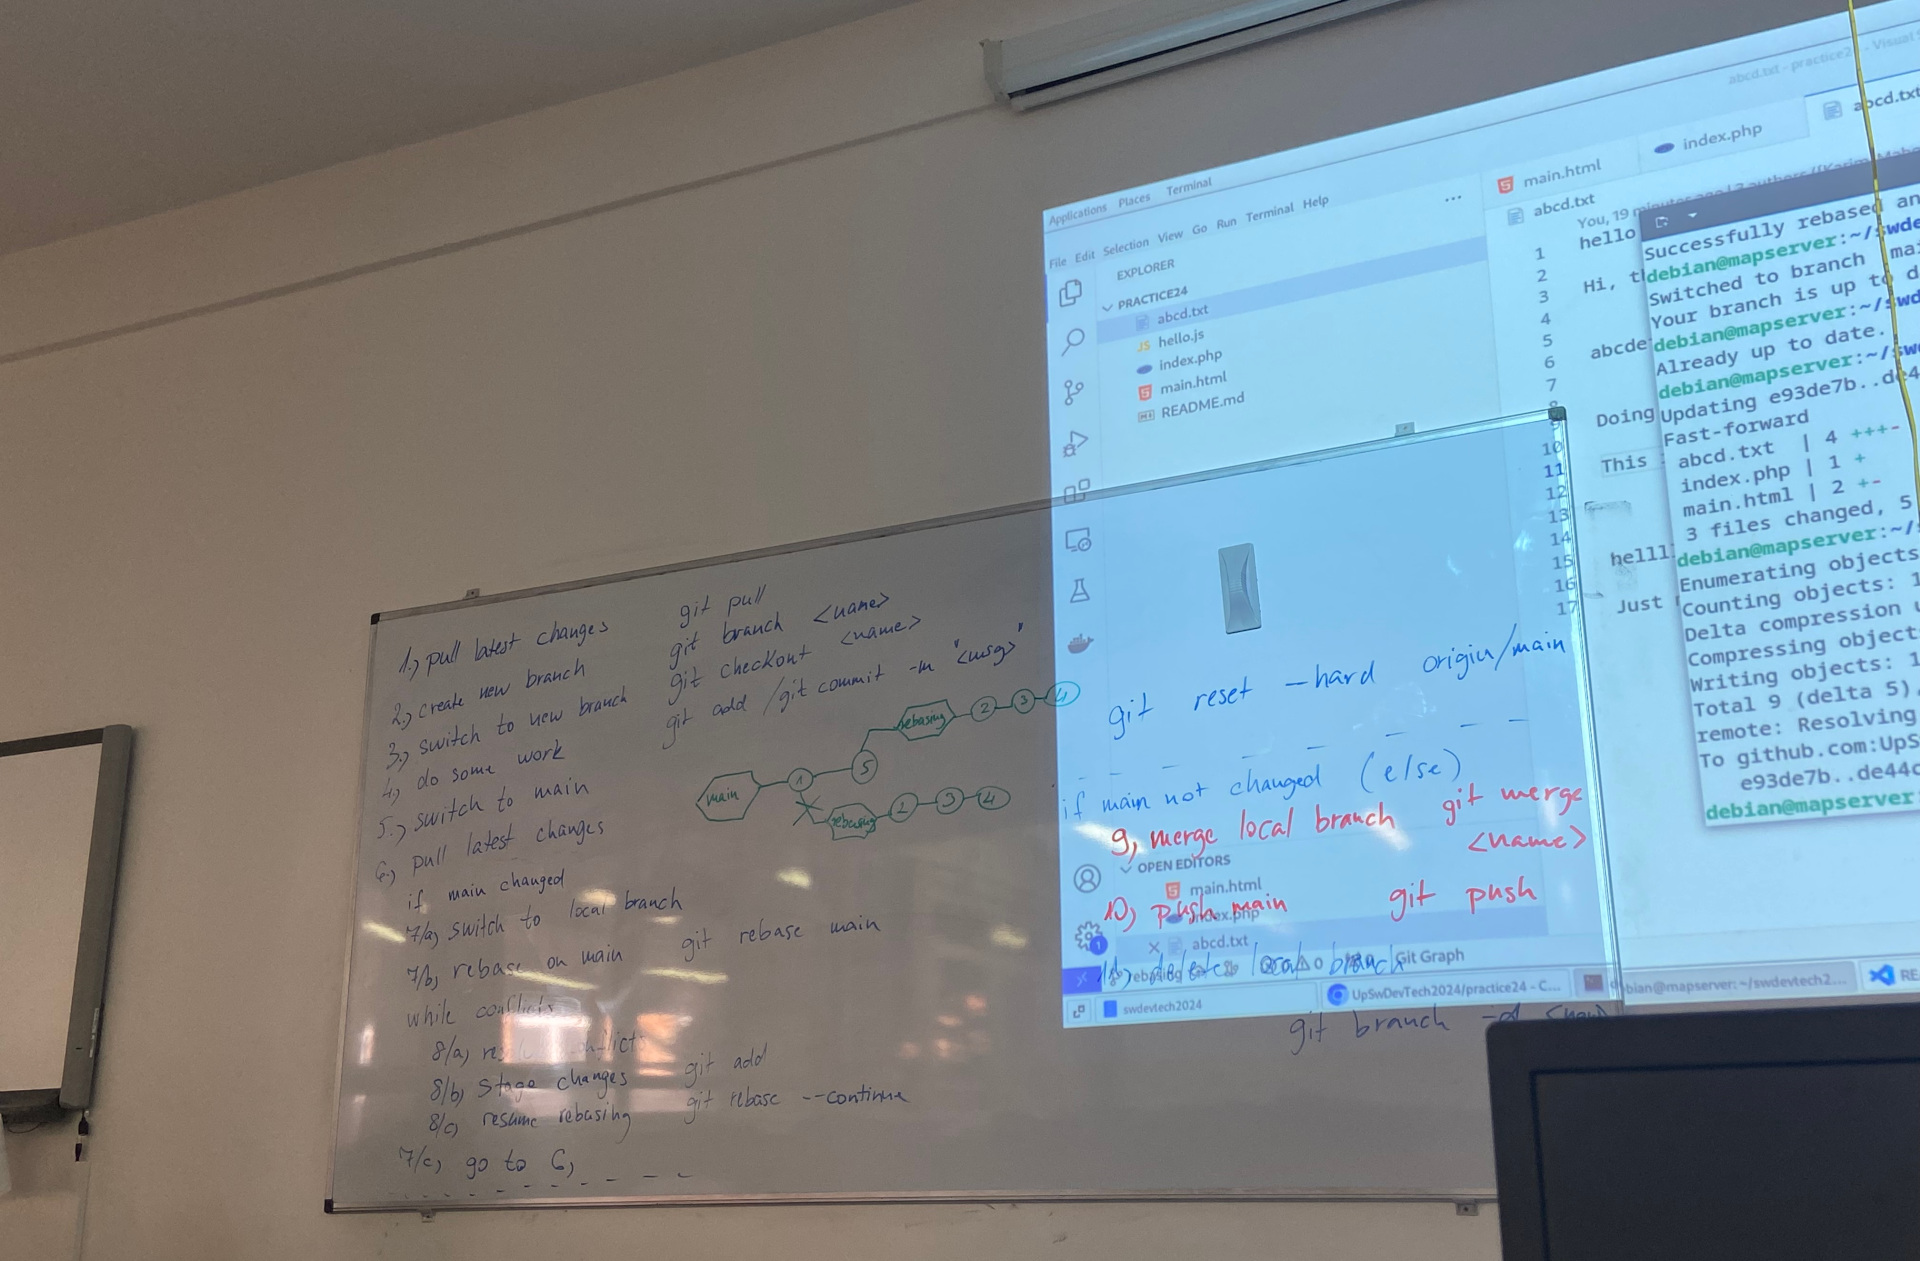 1.) pull latest changes git pull
2.) create new branch git branch <name>
3.) switch to new branch git checkout <name>
4.) do some work git add / git commit -m "<msg>"
5.) switch to main
6.) pull latest changes
if main changed
7/a) switch to local branch
7/b) rebase on main git rebase main
while conflicts
8/a) conflict
8/b) stage changes git add
8/c) resume rebasing git rebase --continue
7/c) go to 6)
main 1 5 rebasing 2 3 4
rebasing 2 3 4
git reset --hard origin/main
if main not changed (else)
9) merge local branch git merge
<name>
10) push main git push
11) delete local branch
git branch -d
Applications Places Terminal
abcd.txt - practice2
File Edit Selection View Go Run Terminal Help
...
EXPLORER
PRACTICE24
abcd.txt
JS hello.js
index.php
main.html
README.md
OPEN EDITORS
main.html
index.php
abcd.txt
Git Graph
main.html
index.php
abcd.txt
abcd.txt
You, 19 minutes ago
1 hello
2
3 Hi,
4
5
6 abcde
7
8
9 Doing
10
11 This
12
13
14
15 helll
16
17 Just
Successfully rebased an
debian@mapserver:~/swde
Switched to branch 'mai
Your branch is up to d
debian@mapserver:~/swd
Already up to date.
debian@mapserver:~/sw
Updating e93de7b..de4
Fast-forward
abcd.txt | 4 +++-
index.php | 1 +
main.html | 2 +-
3 files changed, 5
debian@mapserver:~/s
Enumerating objects
Counting objects: 1
Delta compression u
Compressing object
Writing objects: 1
Total 9 (delta 5),
remote: Resolving
To github.com:UpS
e93de7b..de44c
debian@mapserver:
swdevtech2024
UpSwDevTech2024/practice24 - C...
bian@mapserver: ~/swdevtech2...
RE